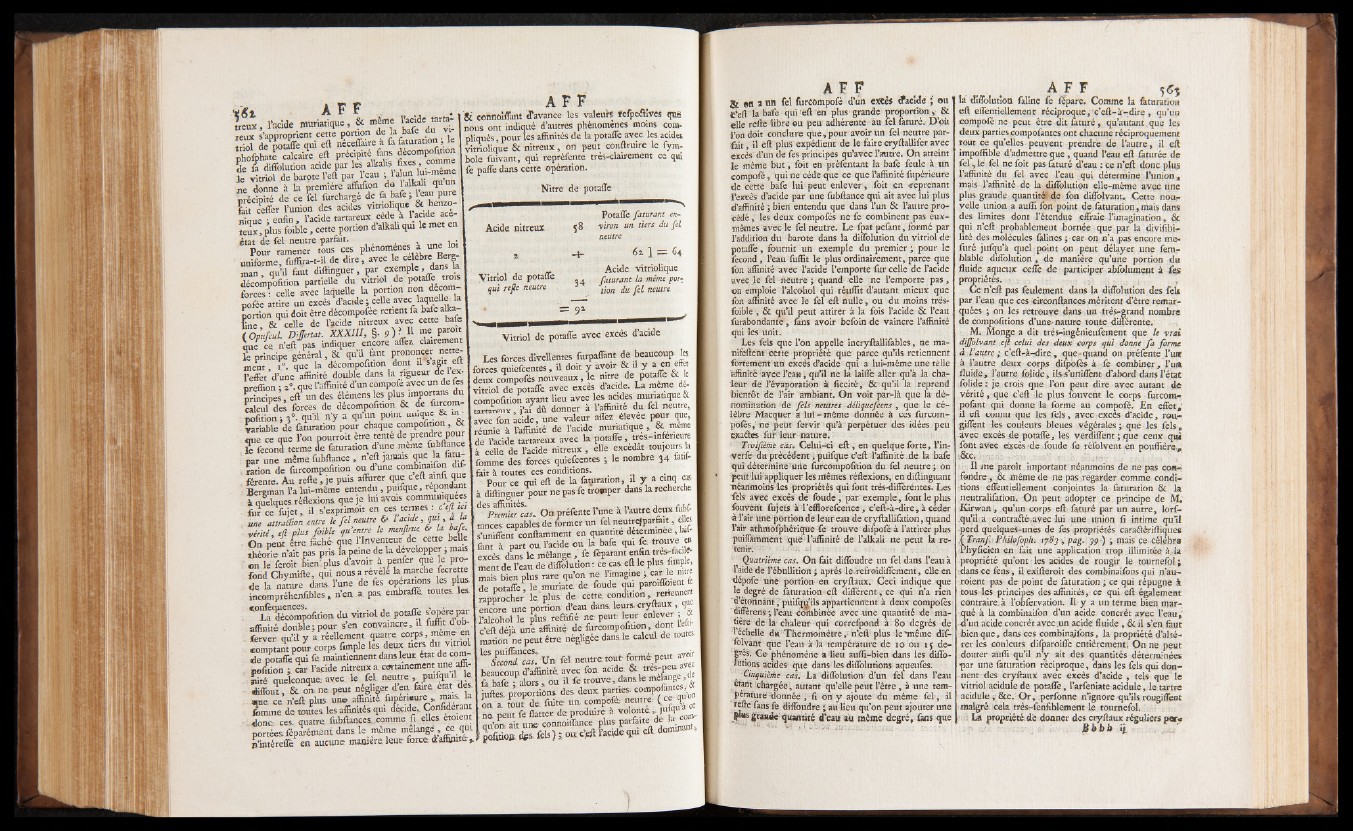 562 A F F
treux, l'acide muriatique, & même l'acide tarta-
reux s'approprient cette portion de la base du vi-
triol de potasse qui est nécessaire à sa saturation; le
phosphate calcaire est précipité sans décomposition
de sa dissolution acide par les alkalis fixes, comme
le vitriol de barote l'est par l'eau; l'alun lui-même
ne donne à la première affusion de l'alkali qu'un
précipité de ce sel surchargé de sa base; l'eau pure
fait cesser l'union des acides vitriolique & benzo-
nique; enfin, l'acide tartareux cède à l'acide acé-
teux, plus foible, cette portion d'alkali qui le met en
état de sel neutre parfait.
Pour ramener tous ces phénomènes à une loi
uniforme, suffira-t-il de dire, avec le célèbre Berg-
man, qu'il faut distinguer, par exemple, dans la
décomposition partielle du vitriol de potasse trois
forces: celle avec laquelle la portion non décom-
posée attire un excès d'acide; celle avec laquelle la
portion qui doit être décomposée retient sa base alka-
line, & celle de l'acide nitreux avec cette base
(Opuscul. Dissertat. XXXIII, §. 9)? Il me paroît
que ce n'est pas indiquer encore assez clairement
le principe général, & qu'il faut prononcer nette-
ment, 1°. que la décomposition dont il s'agit est
l'effet d'une affinité double dans la rigueur de l'ex-
pression; 2°. que l'affinité d'un composé avec un de ses
principes, est un des élémens les plus importans du
calcul des forces de décomposition & de surcom-
position; 3°. qu'il n'y a qu'un point unique & in-
variable de saturation pour chaque composition, &
que ce que l'on pourroit être tenté de prendre pour
le second terme de saturation d'une même substance
par une même substance, n'est jamais que la satu-
ration de surcomposition ou d'une combinaison dif-
férente. Au reste, je puis assurer que c'est ainsi que
Bergman l'a lui-même entendu, puisque, répondant
à quelques réflexions que je lui avois communiquées
sur ce sujet, il s'exprimoit en ces termes: c'est ici
une attraction entre le sel neutre & l'acide, qui, à la
vérité, est plus foible qu'entre le menstrue & la base.
On peut être fâché que l'Inventeur de cette belle
théorie n'ait pas pris la peine de la développer; mais
on le seroit bien plus d'avoir à penser que le pro-
fond Chymiste, qui nous a révélé la marche secrette
de la nature dans l'une de ses opérations les plus
incompréhensibles, n'en a pas embrassé toutes les
conséquences.
La décomposition du vitriol de potasse s'opère par
affinité double; pour s'en convaincre, il suffit d'ob-
server qu'il y a réellement quatre corps, même en
comptant pour corps simple les deux tiers du vitriol
de potasse qui se maintiennent dans leur état de com-
position; car l'acide nitreux a certainement une affi-
nité quelconque avec le sel neutre, puisqu'il le
dissout, & on ne peut négliger d'en faire état dès
que ce n'est plus une affinité supérieure, mais la
somme de toutes les affinités qui décide. Considérant
donc ces quatre substances comme si elles étoient
portées séparément dans le même mélange, ce qui
n'intéresse en aucune manière leur force d'affinité,
A F F
& connoissant d'avance les valeurs respectives que
nous ont indiqué d'autres phénomènes moins com-
pliqués, pour les affinités de la potasse avec les acides
vitriolique & nitreux, on peut construire le sym-
bole suivant, qui représente très-clairement ce qui
se passe dans cette opération.
Nitre de potasse
Acide nitreux 58 Potasse saturant en-
viron un tiers du sel
neutre
2 + 62 ] = 64
Vitriol de potasse
qui reste neutre 34 Acide vitriolique
saturant la même por-
tion du sel neutre
= 92
Vitriol de potasse avec excès d'acide
Les forces divellentes surpassant de beaucoup les
forces quiescentes, il doit y avoir & il y a en effet
deux composés nouveaux, le nitre de potasse & le
vitriol de potasse avec excès d'acide. La même dé-
composition ayant lieu avec les acides muriatique &
tartareux, j'ai dû donner à l'affinité du sel neutre,
avec son acide, une valeur assez élevée pour que,
réunie à l'affinité de l'acide muriatique, & même
de l'acide tartareux avec la potasse, très-inférieure
à celle de l'acide nitreux, elle excédât toujours la
somme des forces quiescentes; le nombre 34 satis-
fait à toutes ces conditions.
Pour ce qui est de la saturation, il y a cinq cas
à distinguer pour ne pas se tromper dans la recherche
des affinités.
Premier cas. On présente l'une à l'autre deux subs-
tances capables de former un sel neutre parfait, elles
s'unissent constamment en quantité déterminée, lais-
sant à part ou l'acide ou la base qui se trouve en
excès dans le mélange, se séparant enfin très-facile-
ment de l'eau de dissolution: ce cas est le plus simple,
mais bien plus rare qu'on ne l'imagine; car le nitre
de potasse, le muriate de soude qui paroissoient se
rapprocher le plus de cette condition, retiennent
encore une portion d'eau dans leurs crystaux, que
l'alcohol le plus rectifié ne peut leur enlever;
c'est déjà une affinité de surcomposition, dont l'esti-
mation ne peut être négligée dans le calcul de toutes
les puissances.
Second cas. Un sel neutre tout formé peut avoir
beaucoup d'affinité avec son acide & très-peu avec
sa base; alors, ou il se trouve, dans le mélange, de
justes proportions des deux parties composantes, &
on a tout de suite un composé neutre (ce qu'on
ne peut se flatter de produire à volonté, jusqu'à ce
qu'on ait une connoissance plus parfaite de la com-
position des sels); ou c'est l'acide qui est dominant,
A F F
& on a un sel surcomposé d'un excès d'acide; ou
c'est la base qui est en plus grande proportion, &
elle reste libre ou peu adhérente au sel saturé. D'où
l'on doit conclure que, pour avoir un sel neutre par-
fait, il est plus expédient de le faire crystalliser avec
excès d'un de ses principes qu'avec l'autre. On atteint
le même but, soit en présentant la base seule à un
composé, qui ne cède que ce que l'affinité supérieure
de cette base lui peut enlever, soit en reprenant
l'excès d'acide par une substance qui ait avec lui plus
d'affinité; bien entendu que dans l'un & l'autre pro-
cédé, les deux composés ne se combinent pas eux-
mêmes avec le sel neutre. Le spat pesant, formé par
l'addition du barote dans la dissolution du vitriol de
potasse, fournit un exemple du premier; pour le
second, l'eau suffit le plus ordinairement, parce que
son affinité avec l'acide l'emporte sur celle de l'acide
avec le sel neutre; quand elle ne l'emporte pas,
on emploie l'alcohol qui réussit d'autant mieux que
son affinité avec le sel est nulle, ou du moins très-
foible, & qu'il peut attirer à la fois l'acide & l'eau
surabondante, sans avoir besoin de vaincre l'affinité
qui les unit.
Les sels que l'on appelle incrystallisables, ne ma-
nifestent cette propriété que parce qu'ils retiennent
fortement un excès d'acide qui a lui-même une telle
affinité avec l'eau, qu'il ne la laisse aller qu'à la cha-
leur de l'évaporation à siccité, & qu'il la reprend
bientôt de l'air ambiant. On voit par-là que la dé-
nomination de sels neutres déliquescens, que le cé-
lèbre Macquer a lui-même donnée à ces surcom-
posés, ne peut servir qu'à perpétuer des idées peu
exactes sur leur nature.
Troisième cas. Celui-ci est, en quelque sorte, l'in-
verse du précédent, puisque c'est l'affinité de la base
qui détermine une surcomposition du sel neutre; on
peut lui appliquer les mêmes réflexions, en distinguant
néanmoins les propriétés qui sont très-différentes. Les
sels avec excès de soude, par exemple, sont le plus
souvent sujets à l'efflorescence, c'est-à-dire, à céder
à l'air une portion de leur eau de crystallisation, quand
l'air athmosphérique se trouve disposé à l'attirer plus
puissamment que l'affinité de l'alkali ne peut la re-
tenir.
Quatrième cas. On fait dissoudre un sel dans l'eau à
l'aide de l'ébullition; après le refroidissement, elle en
dépose une portion en crystaux. Ceci indique que
le degré de saturation est différent, ce qui n'a rien
d'étonnant, puisqu'ils appartiennent à deux composés
différens; l'eau combinée avec une quantité de ma-
tière de la chaleur qui correspond à 80 degrés de
l'échelle du Thermomètre, n'est plus le même dis-
solvant que l'eau à la température de 10 ou 15 de-
grés. Ce phénomène a lieu aussi-bien dans les disso-
lutions acides que dans les dissolutions aqueuses.
Cinquième cas. La dissolution d'un sel dans l'eau
étant chargée, autant qu'elle peut l'être, à une tem-
pérature donnée, si on y ajoute du même sel, il
reste sans se dissoudre; au lieu qu'on peut ajouter une
plus grande quantité d'eau au même degré, sans que
A F F 563
la dissolution saline se sépare. Comme la saturation
est essentiellement réciproque, c'est-à-dire, qu'un
composé ne peut être dit saturé, qu'autant que les
deux parties composantes ont chacune réciproquement
tout ce qu'elles peuvent prendre de l'autre, il est
impossible d'admettre que, quand l'eau est saturée de
sel, le sel ne soit pas saturé d'eau: ce n'est donc plus
l'affinité du sel avec l'eau qui détermine l'union,
mais l'affinité de la dissolution elle-même avec une
plus grande quantité de son dissolvant. Cette nou-
velle union a aussi son point de saturation, mais dans
des limites dont l'étendue effraie l'imagination, &
qui n'est probablement bornée que par la divisibi-
lité des molécules salines; car on n'a pas encore me-
suré jusqu'à quel point on peut délayer une sem-
blable dissolution, de manière qu'une portion du
fluide aqueux cesse de participer absolument à ses
propriétés.
Ce n'est pas seulement dans la dissolution des sels
par l'eau que ces circonstances méritent d'être remar-
quées; on les retrouve dans un très-grand nombre
de compositions d'une nature toute différente.
M. Monge a dit très-ingénieusement que le vrai
dissolvant est celui des deux corps qui donne sa forme
à l'autre; c'est-à-dire, que quand on présente l'un
à l'autre deux corps disposés à se combiner, l'un
fluide, l'autre solide, ils s'unissent d'abord dans l'état
solide: je crois que l'on peut dire avec autant de
vérité, que c'est le plus souvent le corps surcom-
posant qui donne la forme au composé. En effet,
il est connu que les sels, avec excès d'acide, rou-
gissent les couleurs bleues végétales; que les sels,
avec excès de potasse, les verdissent; que ceux qui
sont avec excès de soude se résolvent en poussière,
&c.
Il me paroît important néanmoins de ne pas con-
fondre, & même de ne pas regarder comme condi-
tions essentiellement conjointes la saturation & la
neutralisation. On peut adopter ce principe de M.
Kirwan, qu'un corps est saturé par un autre, lors-
qu'il a contracté avec lui une union si intime qu'il
perd quelques-unes de ses propriétés caractéristiques
(Trans. Philosoph. 1783, pag. 39.); mais ce célèbre
Physicien en fait une application trop illimitée à la
propriété qu'ont les acides de rougir le tournesol;
dans ce sens, il existeroit des combinaisons qui n'au-
roient pas de point de saturation; ce qui répugne à
tous les principes des affinités, ce qui est également
contraire à l'observation. Il y a un terme bien mar-
qué à la combinaison d'un acide concret avec l'eau,
d'un acide concret avec un acide fluide, & il s'en faut
bien que, dans ces combinaisons, la propriété d'alté-
rer les couleurs disparoisse entièrement. On ne peut
douter aussi qu'il n'y ait des quantités déterminées
par une saturation réciproque, dans les sels qui don-
nent des crystaux avec excès d'acide, tels que le
vitriol acidule de potasse, l'arséniate acidule, le tartre
acidule, &c. Or, personne n'ignore qu'ils rougissent
malgré cela très-sensiblement le tournesol.
La propriété de donner des crystaux réguliers par-
Bbbb ij